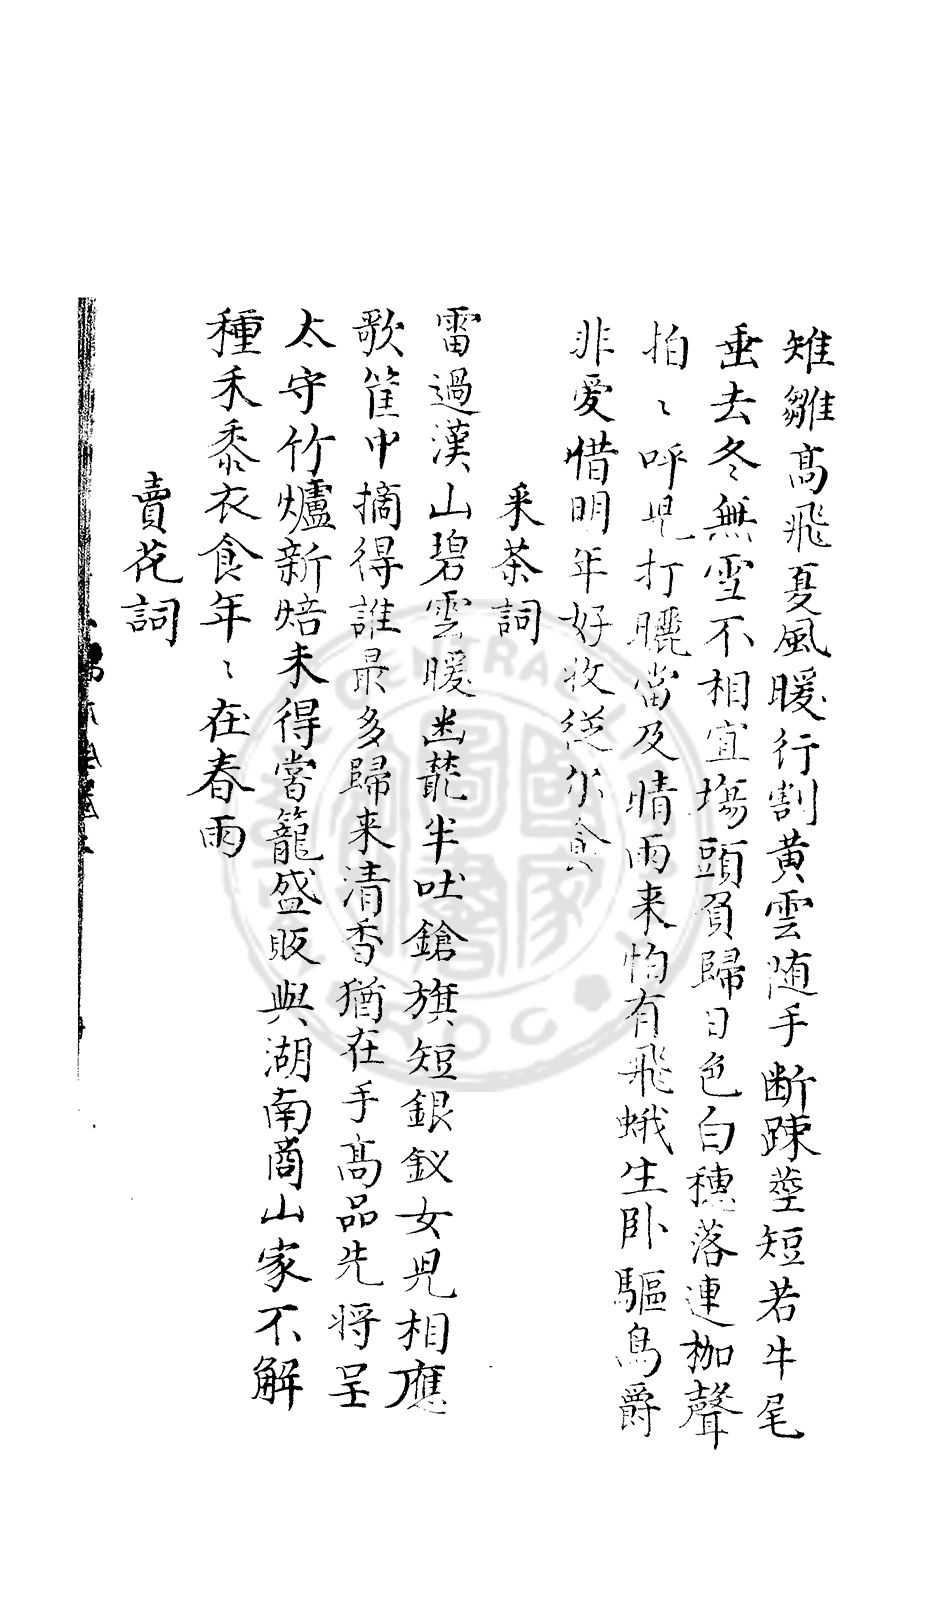 雉雛高飛夏風暖行割黄雲随手断踈莖短若牛尾
垂去冬無雪不相宜塲頭負歸日色白穗落連枷聲
拍〻呼児打曬當及晴雨来怕有飛蛾生卧驅鳥爵
非愛惜明年好收従尔食
采茶詞
雷過漢山碧雲暖幽蕽半吐鎗旗短銀釵女児相應
歌筐中摘得誰最多歸来清香猶在手高品先将呈
太守竹爐新焙未得嘗籠盛販與湖南商山家不解
種禾黍衣食年〻在春雨
賣花詞